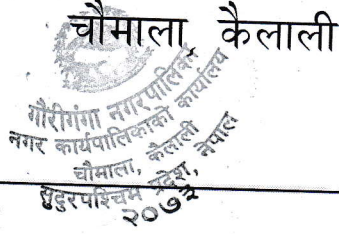 चौमाला कैलाली
गौरीगंगा नगरपालिका
नगर कार्यपालिकाको कार्यालय
चौमाला, कैलाली
सुदुरपश्चिम प्रदेश, नेपाल
२०७३